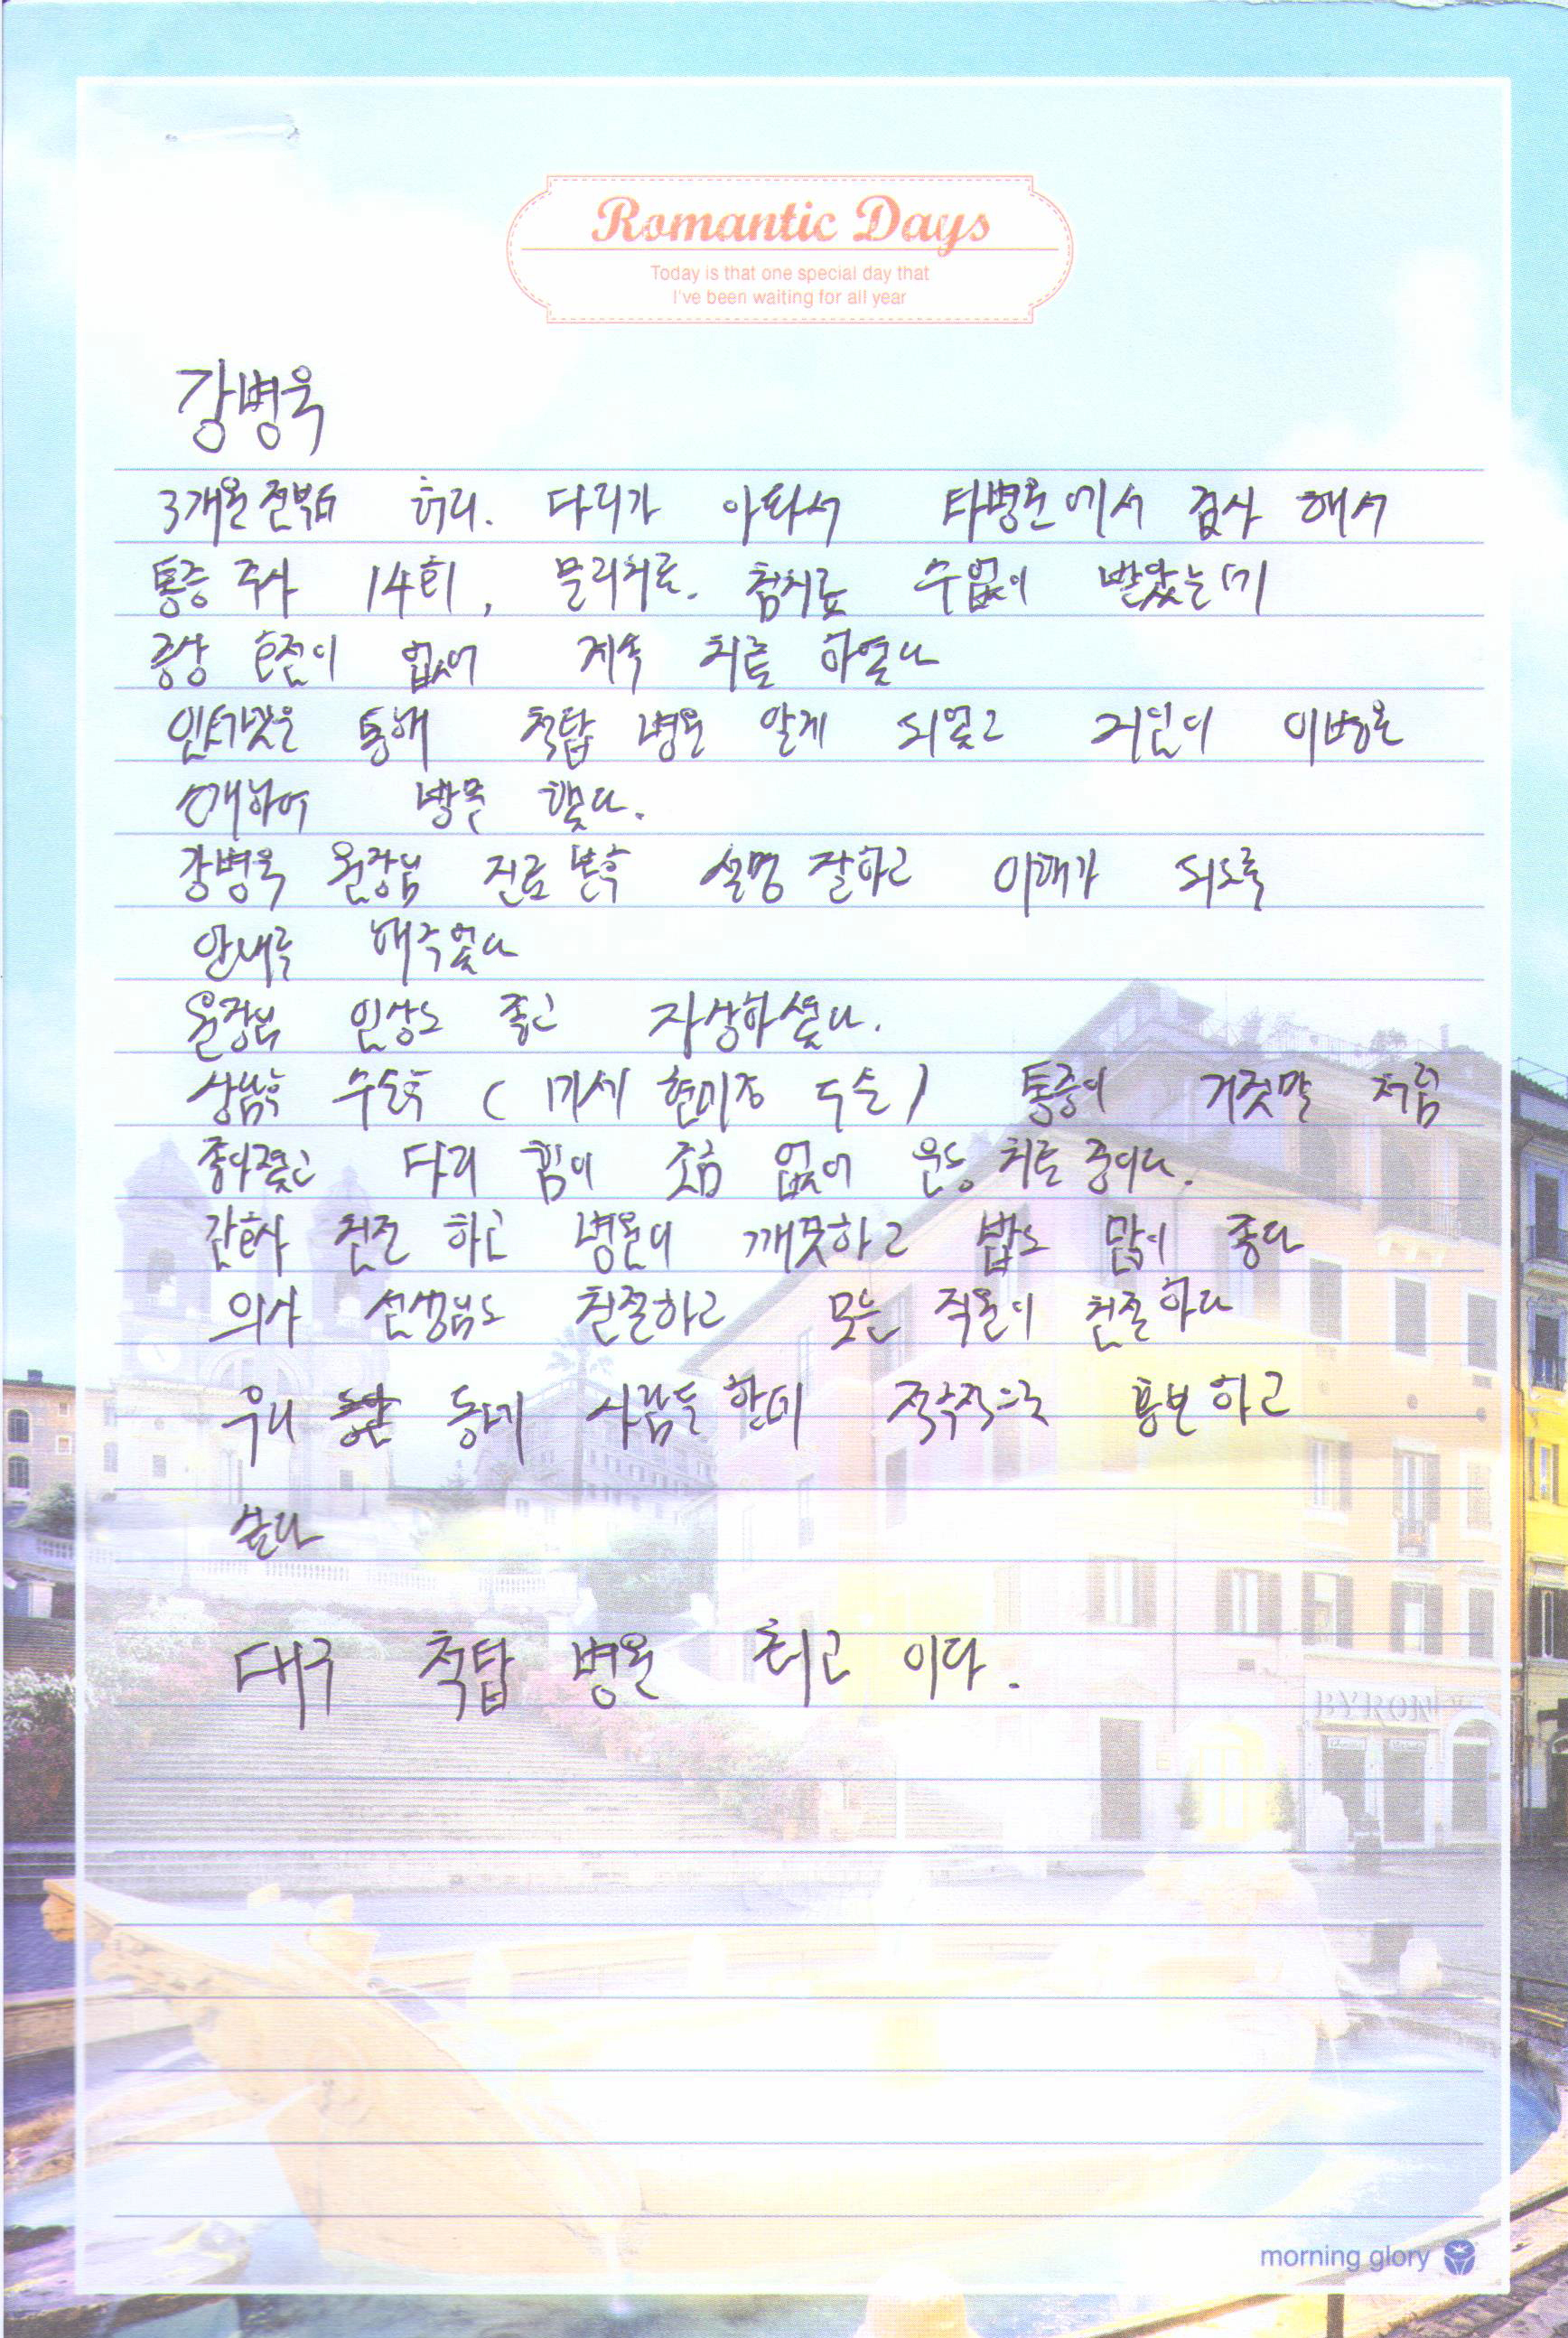 Romantic Days
Today is that one special day that
I've been waiting for all year
강병욱
3개월 전부터 허리. 다리가 아파서 타병원에서 검사 해서
통증 주사 14회, 물리치료. 침치료 수없이 받았는데
증상 호전이 없어 계속 치료 하였다
인터넷을 통해 척탑 병원 알게 되었고 지인이 이병원
소개하여 방문 했다.
강병욱 원장님 진료 본후 설명 잘하고 이해가 되도록
안내를 해주었다
원장님 인상도 좋고 자상하셨다.
상담후 수술후 ( 미세 현미경 수술 ) 통증이 거짓말 처럼
좋아졌고 다리 힘이 조금 없어 운동 치료 중이다.
간호사 친절 하고 병원이 깨끗하고 밥도 맛이 좋다
의사 선생님도 친절하고 모든 직원이 친절하다
우리 동네 사람들 한테 적극적으로 홍보하고
싶다
대구 척탑 병원 최고 이다.
BYRON
morning glory